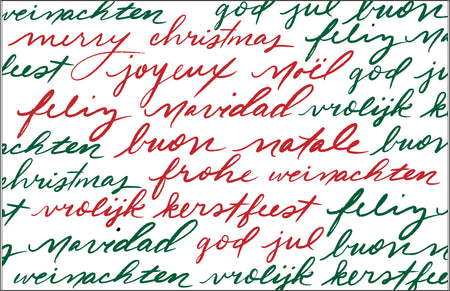 weinachten god jul buon
merry christmas feliz na
feest joyeux noël god ju
feliz navidad vrolijk ke
nachten buon natale buon
christmas frohe weinachten
t vrolijk kerstfeest feliz
z navidad god jul buon n
weinachten vrolijk kerstfee